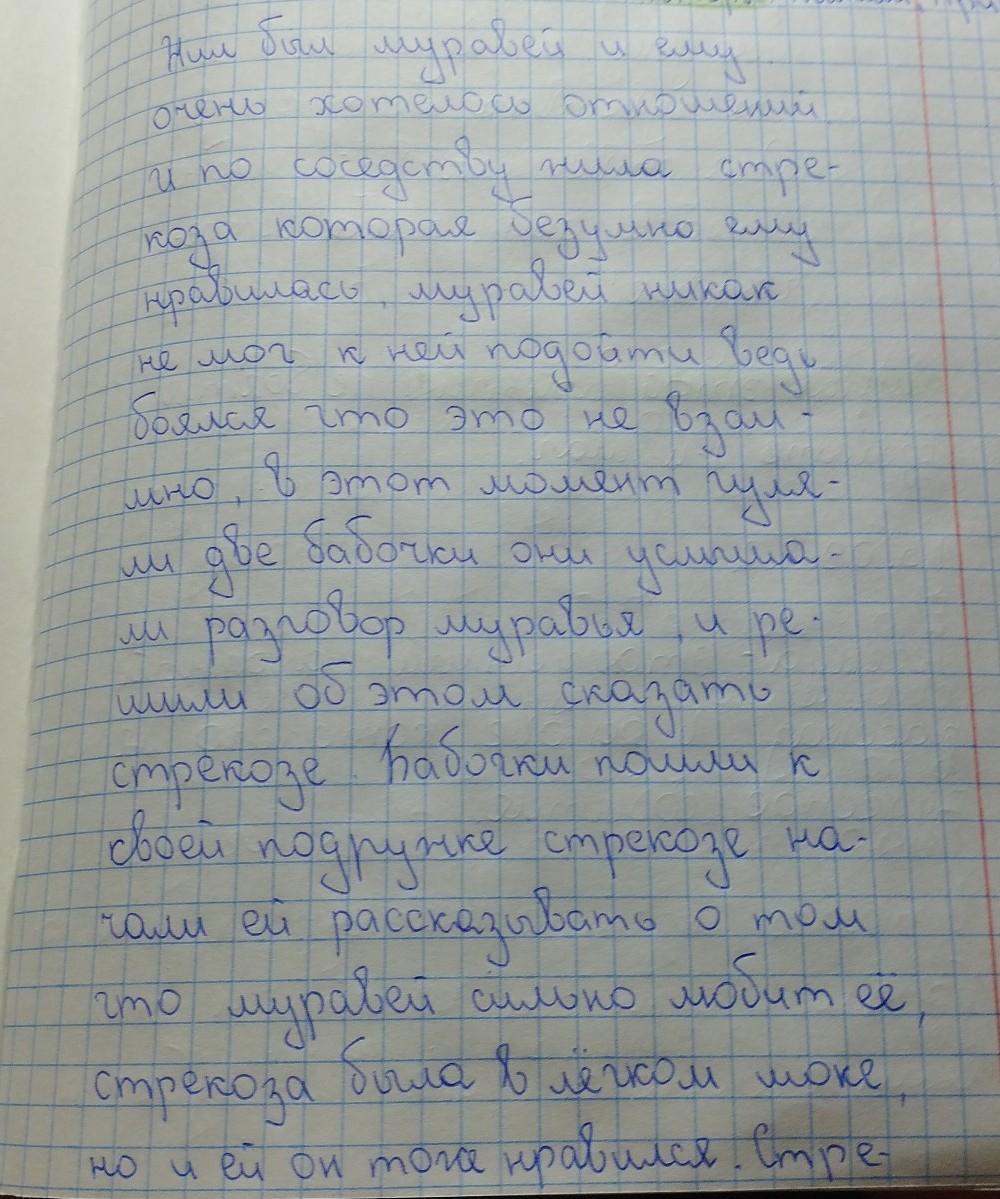 Жил был муравей и ему
очень хотелось отношений
и по соседству жила стре-
коза которая безумно ему
нравилась, муравей никак
не мог к ней подойти ведь
боялся что это не взаи-
мно, в этот момент гуля-
ли две бабочки они услыша-
ли разговор муравья, и ре-
шили об этом сказать
стрекозе. Бабочки пошли к
своей подружке стрекозе на-
чали ей рассказывать о том
что муравей сильно любит её,
стрекоза была в лёгком шоке,
но и ей он тога нравился. Стре-